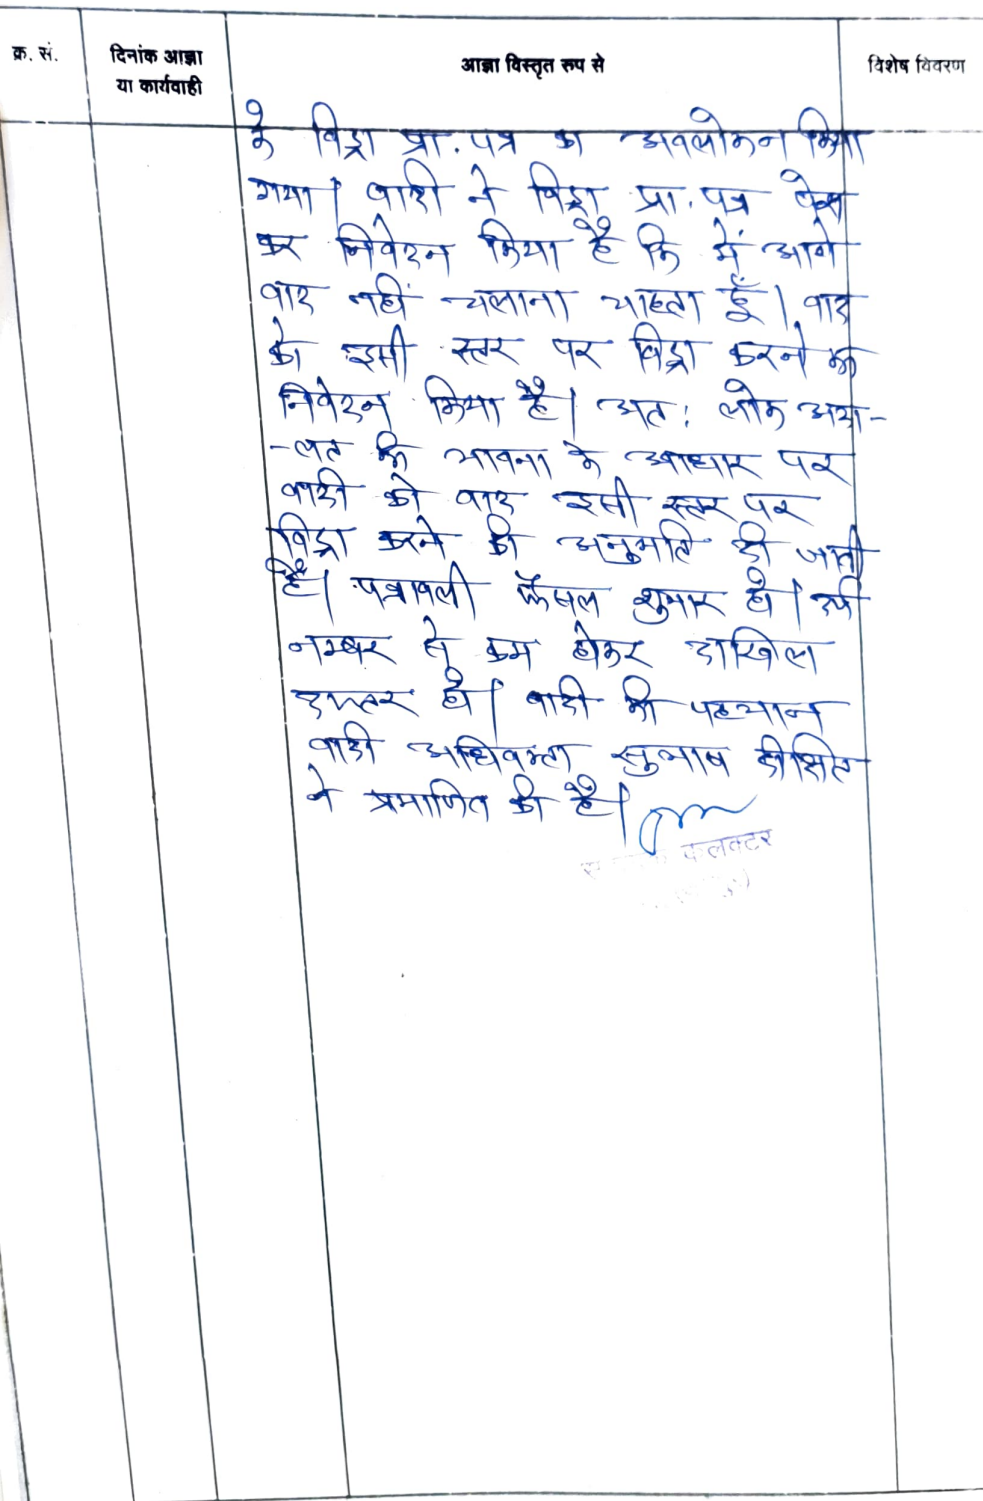 क्र. सं.
दिनांक आज्ञा
या कार्यवाही
आज्ञा विस्तृत रुप से
विशेष विवरण
के विड्रा प्रा. पत्र का अवलोकन किया
गया। वादी ने विड्रा प्रा. पत्र पेश
कर निवेदन किया है कि में आगे
वाद नहीं चलाना चाहता हूँ। वाद
को इसी स्तर पर विड्रा करने का
निवेदन किया है। अतः लोक अदा-
-लत की भावना के आधार पर
वादी को वाद इसी स्तर पर
विड्रा करने की अनुमति दी जाती
है। पत्रावली फैसल शुमार हो।
नम्बर से कम होकर दाखिल
दफ्तर हो। वादी की पहचान
वादी अधिवक्ता सुभाष दीक्षित
ने प्रमाणित की है।
कलक्टर